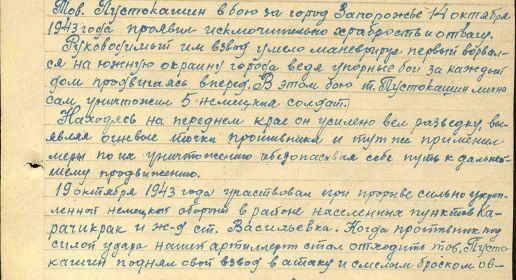 Тов. Пустокашин в бою за город Запорожье 14 октября
1943 года проявил исключительно храбрость и отвагу.
Руководимый им взвод умело маневрируя первой ворвал-
ся на южную окраину города ведя упорные бои за каждый
дом продвигаясь вперед. В этом бою т. Пустокашин лично
сам уничтожил 5 немецких солдат.
Находясь на переднем крае он усилено вел разведку, вы-
являя огневые точки противника и тут же применял
меры по их уничтожению обезопасивая себе путь к дальней-
шему продвижению.
19 октября 1943 года участвовал при прорыве сильно укреп-
ленной немецкой обороны в районе населенных пунктов Ка-
рачикрак и ж-д ст. Васильевка. Когда противник под
силой удара нашей артиллерии стал отходить тов. Пусто-
кашин поднял свой взвод в атаку и смелым броском ов-